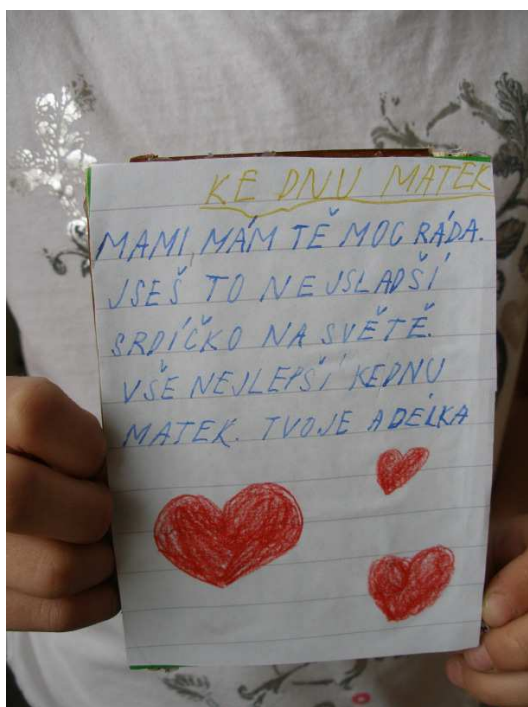 KE DNU MATEK
MAMI, MÁM TĚ MOC RÁDA.
JSEŠ TO NEJSLADŠÍ
SRDÍČKO NA SVĚTĚ.
VŠE NEJLEPŠÍ KEDNU
MATEK. TVOJE ADÉLKA